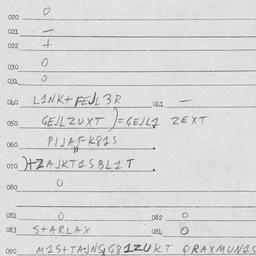 020 0
021 —
022 +
030 0
031 0
040 L1NK+FEJL3R 041 —
050 GEJLZUXT)=GEJL1 ZEXT
060 PIJAF-K81S
070 )+ZAJKT1SBL1T.
080 0
081 0 082 0
083 S+ARLAX 084 0
090 M1S+TAJNGG81ZUKT QRAXMUN1S